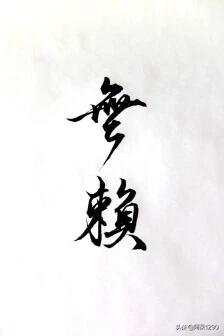 無
賴
头条@阿歆1290